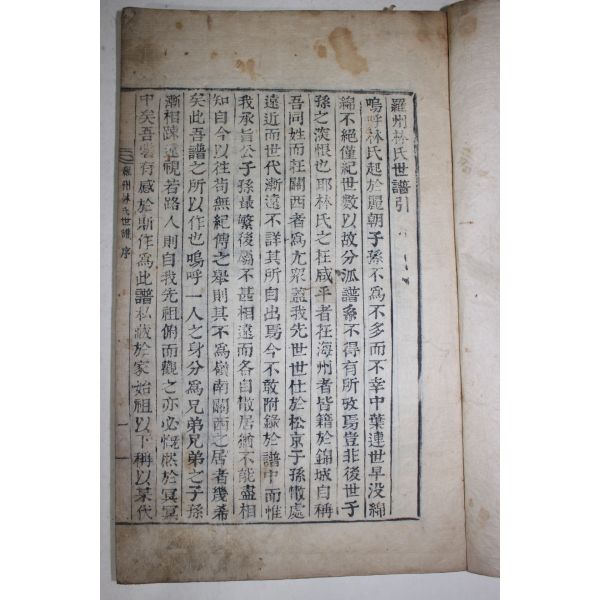 羅州林氏世譜引
嗚呼林氏起於麗朝子孫不爲不多而不幸中葉連世早没綿
綿不絶僅紀世數以故分派譜系不得有所攷焉豈非後世子
孫之淡恨也耶林氏之在咸平者在海州者皆籍於錦城自稱
吾同姓而在關西者爲尤衆蓋我先世世仕於松京子孫散處
遠近而世代漸遠不詳其所自出焉今不敢附錄於譜中而惟
我承旨公子孫最繁後屬不甚相遠而各自散居猶不能盡相
知自今以往苟無紀傳之擧則其不爲嶺南關西之居者幾希
矣此吾譜之所以作也嗚呼一人之身分爲兄弟兄弟之子孫
漸相踈遠視若路人則自我先祖俯而觀之亦必慨然於冥冥
中矣吾嘗有感於斯作爲此譜私藏於家始祖以下稱以某代
羅州林氏世譜 序 一